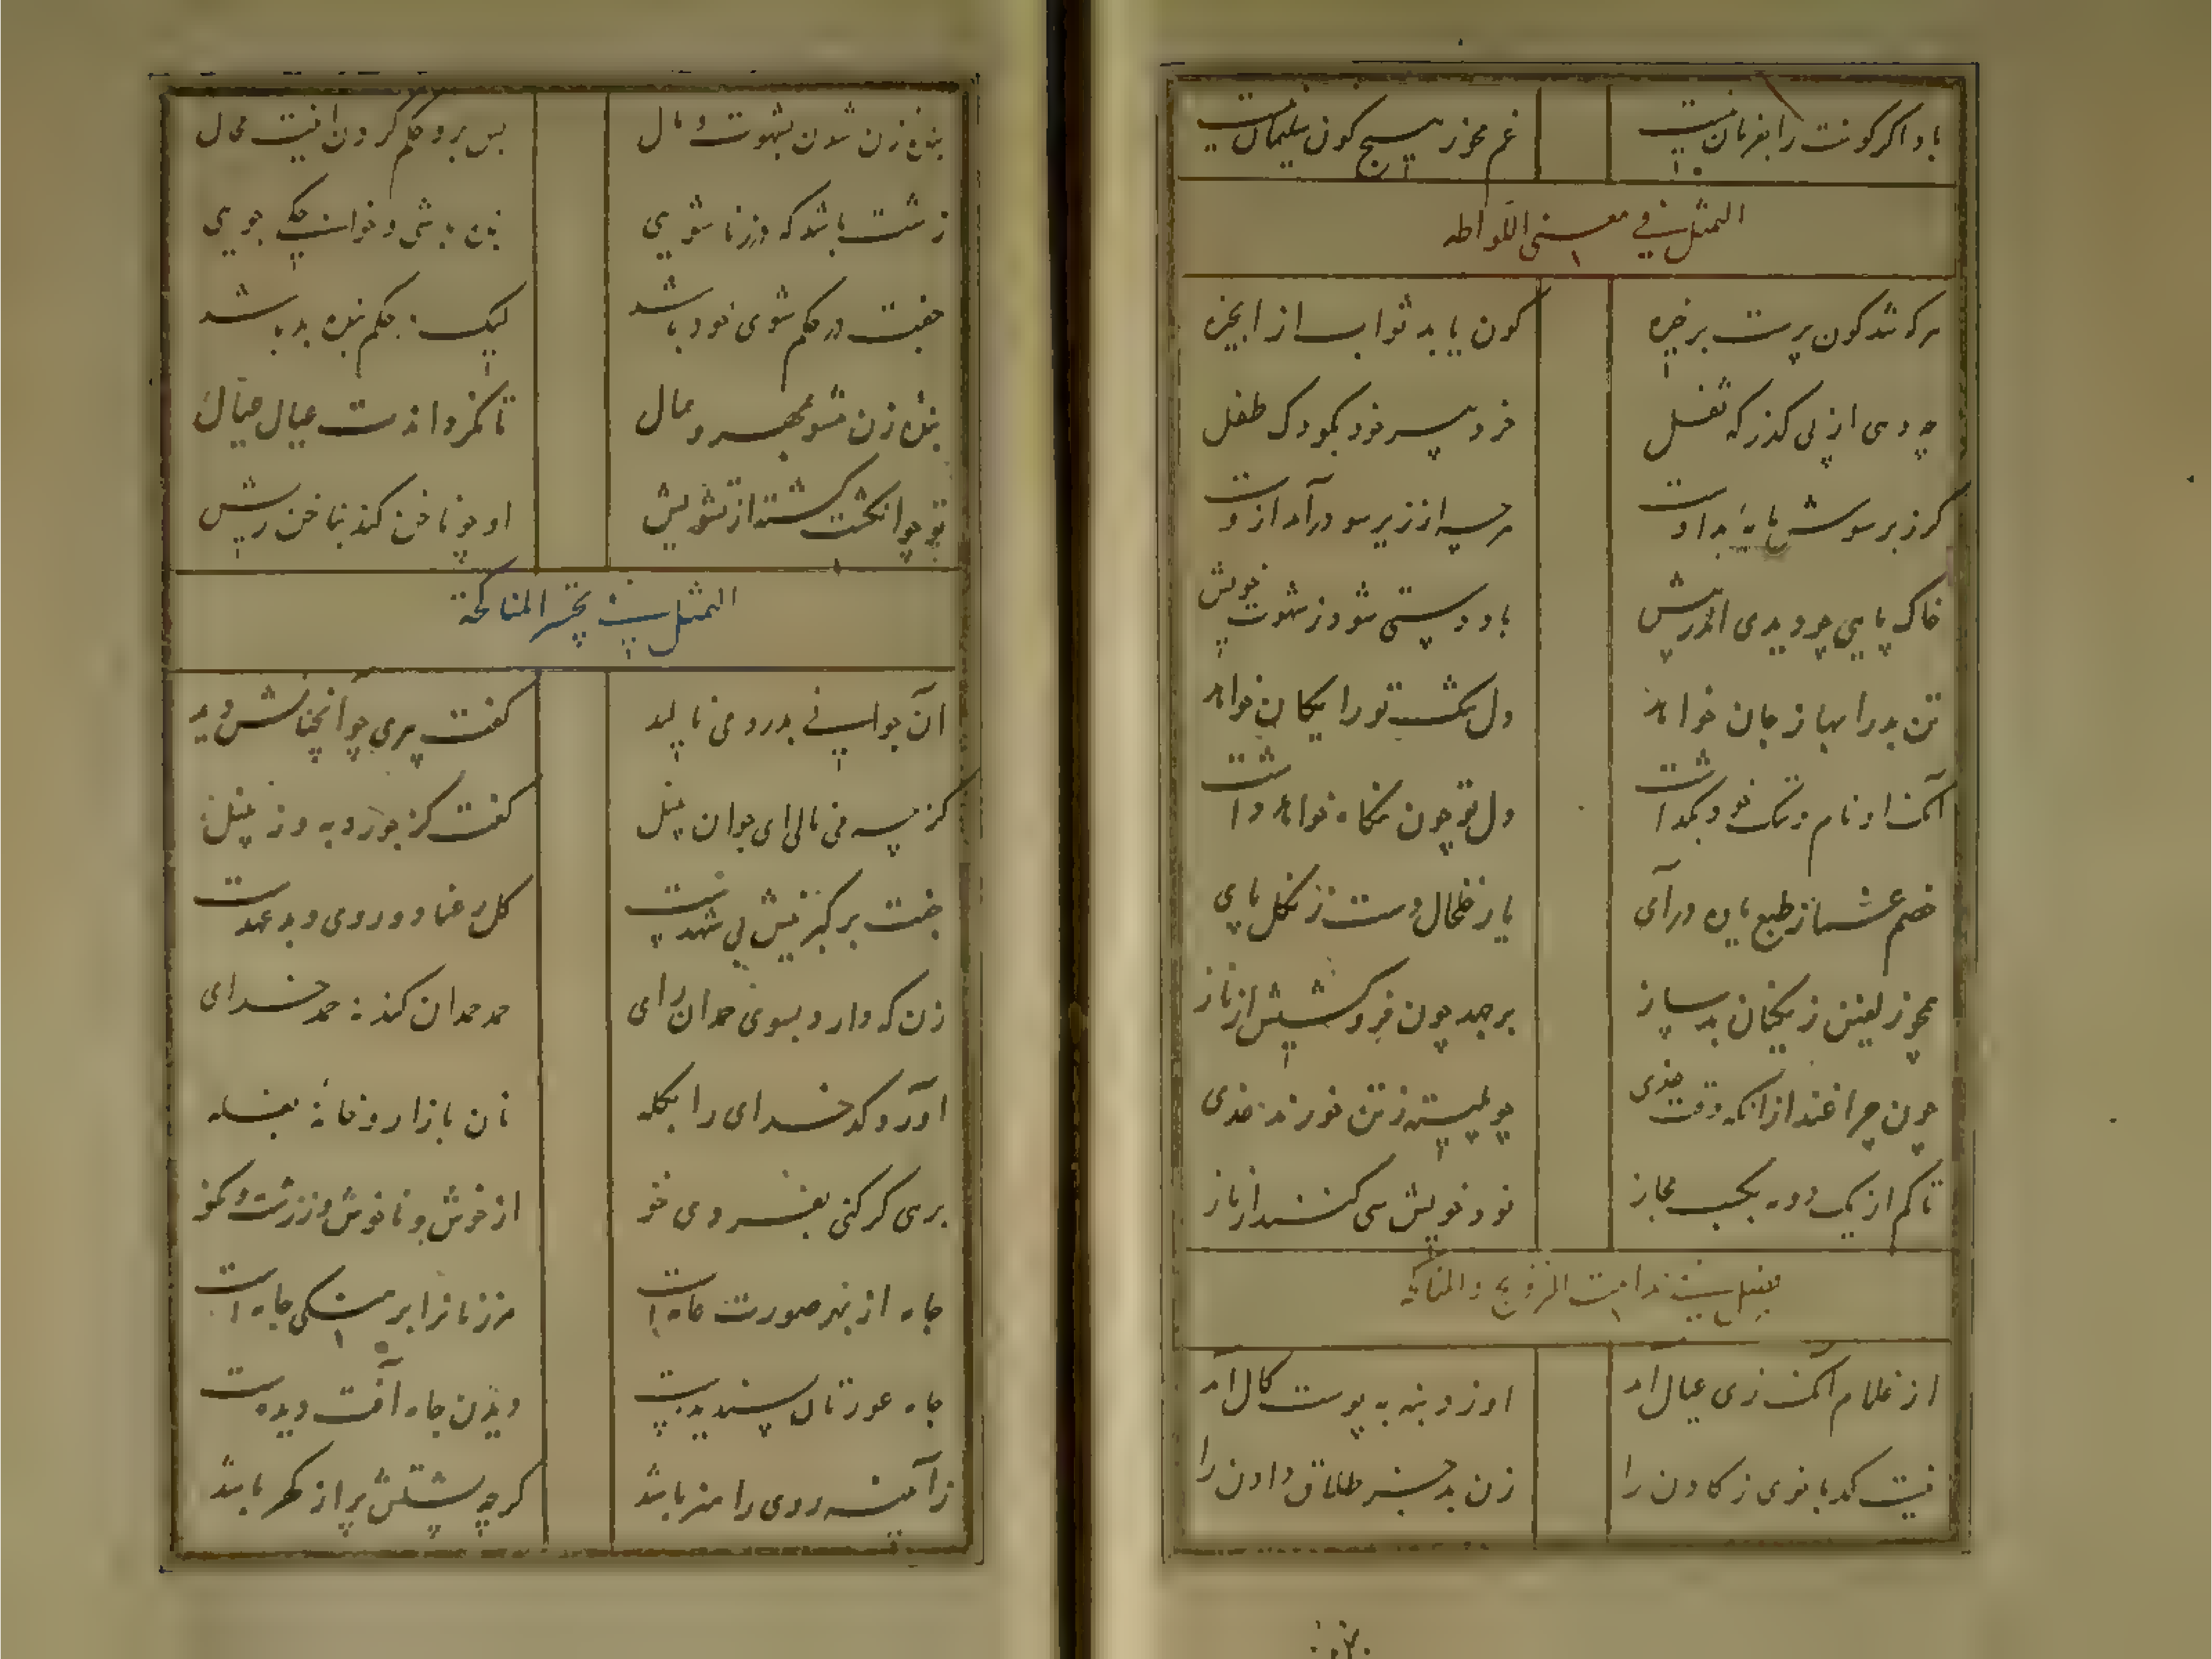 باد اگر کونت را بفرمان نیست غم مخور هیچ کون سلیمان نیست
التمثیل فی معنی اللواطه
هرکه شد کون پرست بر خیره کون یابد ثواب از
چه دمی از پی گذر که تفل خرد پسر خود کودک طفل
کز بر سوش مایه بداوست هرچه از زیر سو درآمد ازوست
خاک پایی چو دیدی اندر پیش باد دستی شود ز شهوت خویش
تن بد را بها ز جان خواهد دل تو را یکان خواهد
آنک او نام و ننگ خود بگذاشت دل تو چون نگاه خواهد داشت
خصم عشقند از طبع یاره درآی یار خلخال دست ز نکل پای
مخور لفتن ز نیکخان بد ساز برجهد چون فرو کشیش از ناز
چون چراغند از آنکه وقت غذی چو فتیله ز تن خورند غذی
تا کم از یک دوه بحسب مجاز خود خویش می کشند از ناز
فی ندامت التزویج والمناکحه
از غلام آنک زی عیال آمد او ز دنبه به پوست کال آمد
نیست کدبانوی ز کاون را زن بد جز طلاق دادن را
بنده زن شدن بشهوت و مال پس برو حکم کردن اینت محال
زشت باشد که در زناشویی بنده باشی و خوانگی جویی
جفت در حکم شوی خود باشد لیک در حکم بنده بد باشد
بنده زن مشو بمهر و بمال تا نگرداندت عیال عیال
تو چو انگشت گشته از تشویش او چو ناخن کند بناخن ریش
التمثیل فی المناکحة
آن جوانی بدرد می نالید گفت پیری چو آنچنانش دید
کز چه می نالی ای جوان نبیل گفت کز جور دبه و زنبیل
جفت برگیر نیش بی شهدست گل رعنا دوروی و بدعهدست
زن که دارد بسوی حمدان رای حمد حمدان کند نه حمد خدای
آورد کدخدای را بکله نان بازار و خانه بغله
بری گر کنی بفردی خو از خوش و ناخوش و ز زشت و نکو
جاه از بهر صورت ماه است مر زنانرا برهنگی جاه است
جاه عورتان پسندیدست دیدن جاه آفت دیدست
زآینه روی را هنر باشد گرچه پشتش پر از گهر باشد